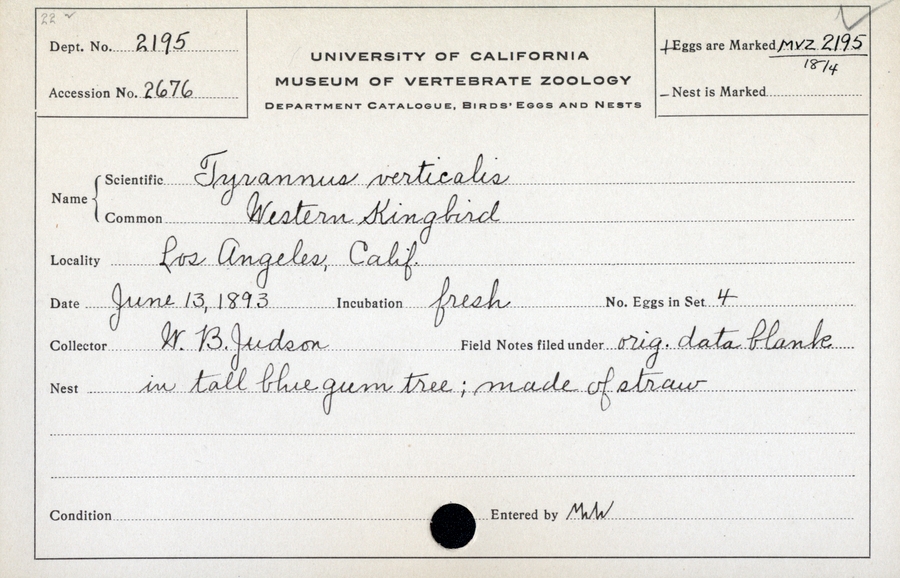 22
Dept. No. 2195
Accession No. 2676
UNIVERSITY OF CALIFORNIA
MUSEUM OF VERTEBRATE ZOOLOGY
DEPARTMENT CATALOGUE, BIRDS' EGGS AND NESTS
+Eggs are Marked MVZ 2195
18/4
– Nest is Marked
Name { Scientific Tyrannus verticalis
Common Western Kingbird
Locality Los Angeles, Calif.
Date June 13, 1893 Incubation fresh No. Eggs in Set 4
Collector W. B. Judson Field Notes filed under orig. data blank
Nest in tall blue gum tree; made of straw
Condition Entered by